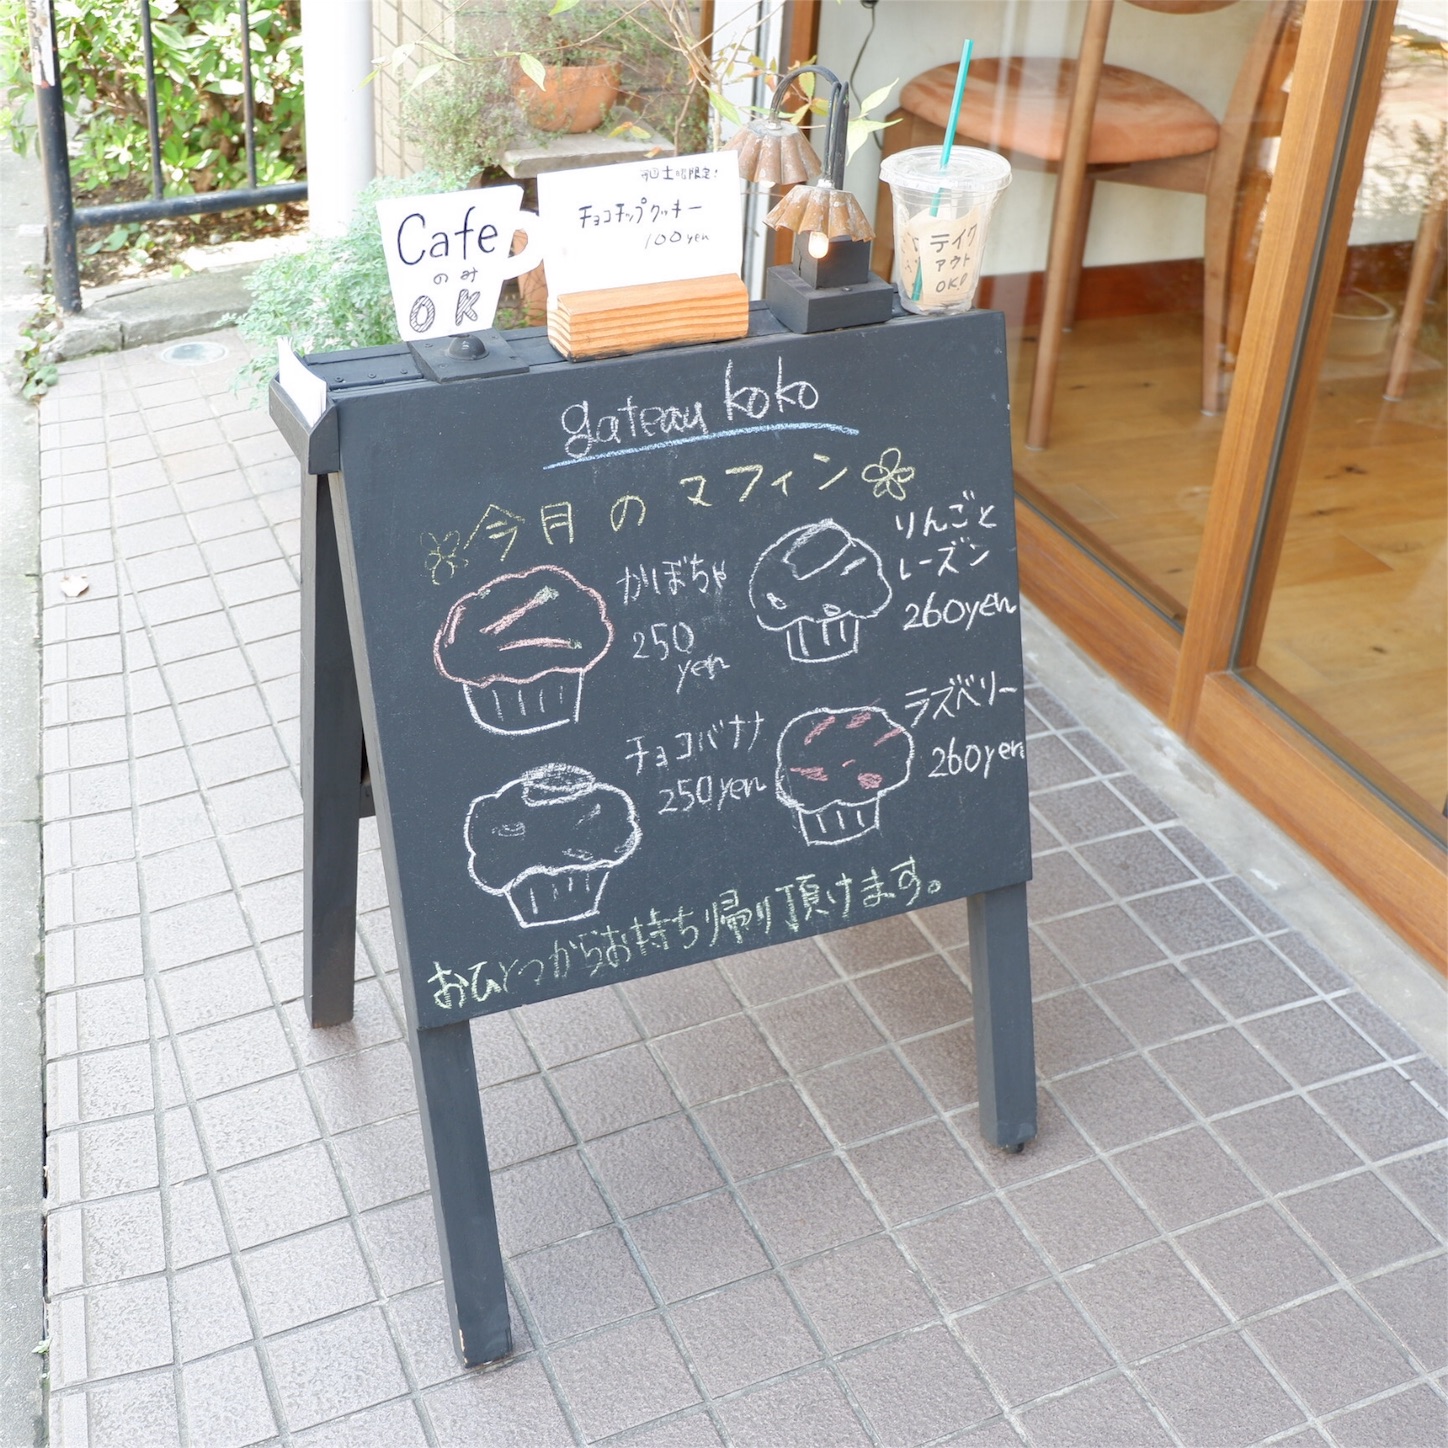 Cafe
のみ
OK
今回土曜限定!
チョコチップクッキー
100yen
テイク
アウト
OK!
gateau koko
今月のマフィン
かぼちゃ
250
yen
りんごと
レーズン
260yen
チョコバナナ
250yen
ラズベリー
260yen
おひとつからお持ち帰り頂けます。